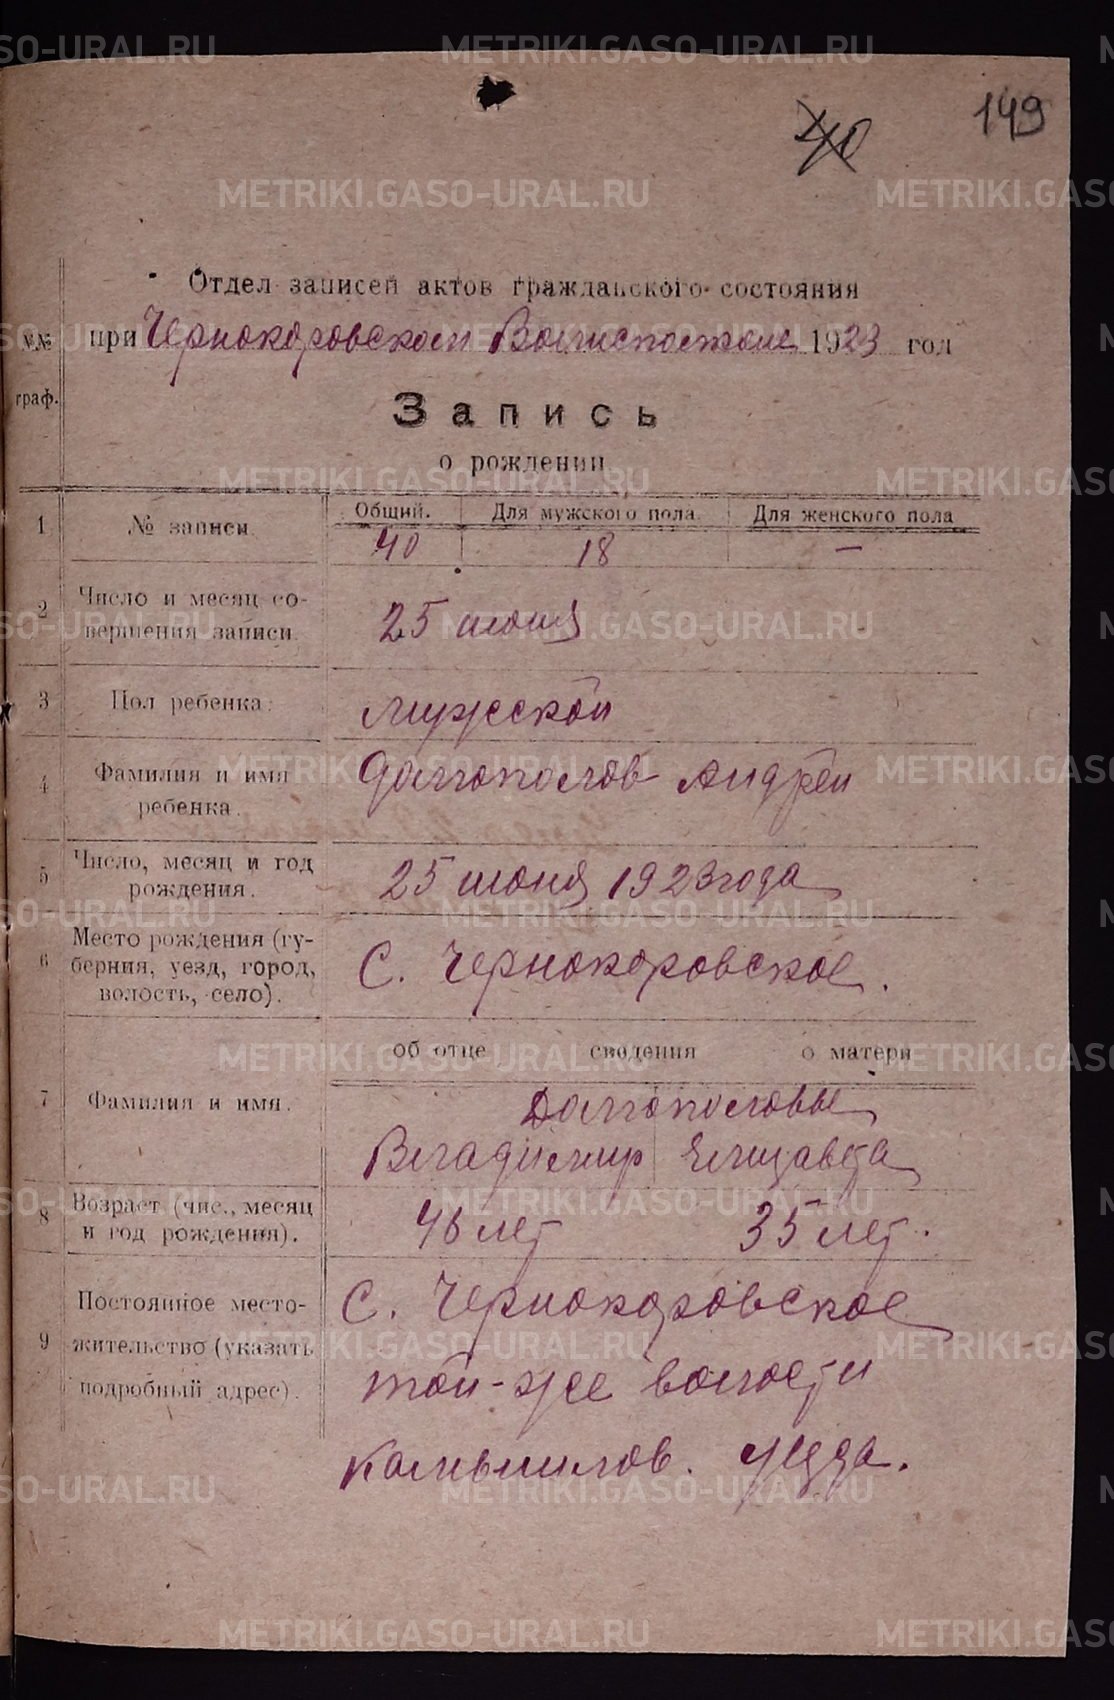 149
40
Отдел записей актов гражданского состояния
№№ при Чернокоровском Волисполкоме 1923 год
граф.
Запись
о рождении
1 № записи. Общий. Для мужского пола. Для женского пола
40 18 —
2 Число и месяц совершения записи.
25 июня
3 Пол ребенка.
мужской
4 Фамилия и имя
ребенка.
Долгополов Андрей
5 Число, месяц и год
рождения.
25 июня 1923 года
6 Место рождения (гу-
берния, уезд, город,
волость, село).
С. Чернокоровское.
об отце сведения о матери
7 Фамилия и имя.
Долгополовы
Владимир Елизавета
8 Возраст (чис., месяц
и год рождения).
46 лет 35 лет.
9 Постоянное место-
жительство (указать
подробный адрес).
С. Чернокоровское
той-же волости
Камышлов. уезда.
METRIKI.GASO-URAL.RU